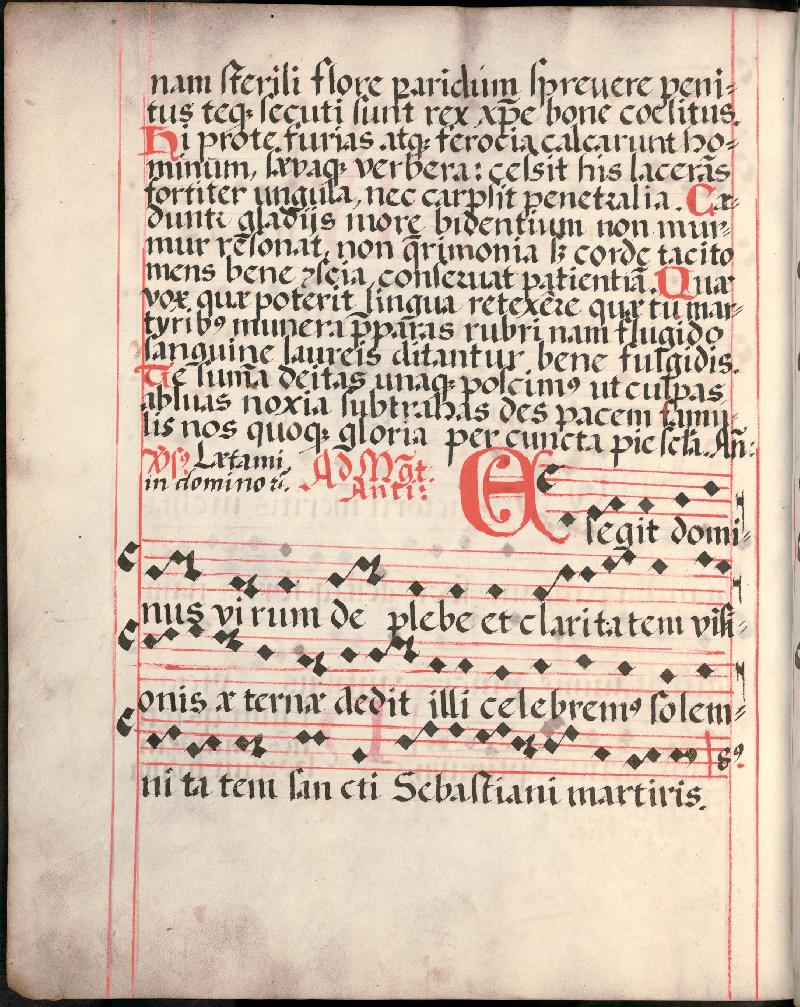 nam sterili flore paridum spreuere peni-
tus teq; secuti sunt rex xp̄e bone coelitus.
Hi pro te furias atq; ferocia calcarunt ho-
minum, sævaq; verbera: cessit his lacerās
fortiter ungula, nec carpsit penetralia. Cæ-
duntr gladijs more bidentium non mur-
mur resonat, non q̄rimonia sꝫ corde tacito
mens bene ꝯscia, conseruat patientiā. Quæ
vox quæ poterit lingua retexere quæ tu mar-
tyribꝰ munera p̄paras rubri nam flugido
sanguine laureis ditantur bene fulgidis.
Te sum̄a deitas unaq; poscimꝰ ut culpas
abluas noxia subtrahas des pacem famu-
lis nos quoq; gloria per cuncta pie scl̄a. Añ:
Lætami
in domino
Ad Mgt.
Anti:
E
legit domi-
nus vi rum de plebe et claritatem visi-
onis æ ternæ dedit illi celebremꝰ solem-
ni ta tem san cti Sebastiani martiris.
8ꝰ